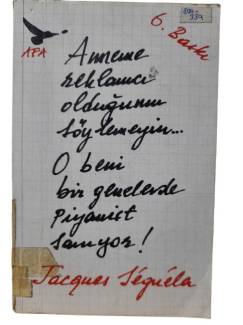 6. Baskı
AFA
Anneme
reklamcı
olduğumu
söylemeyin...
O beni
bir genelevde
Piyanist
sanıyor!
Jacques Séguéla